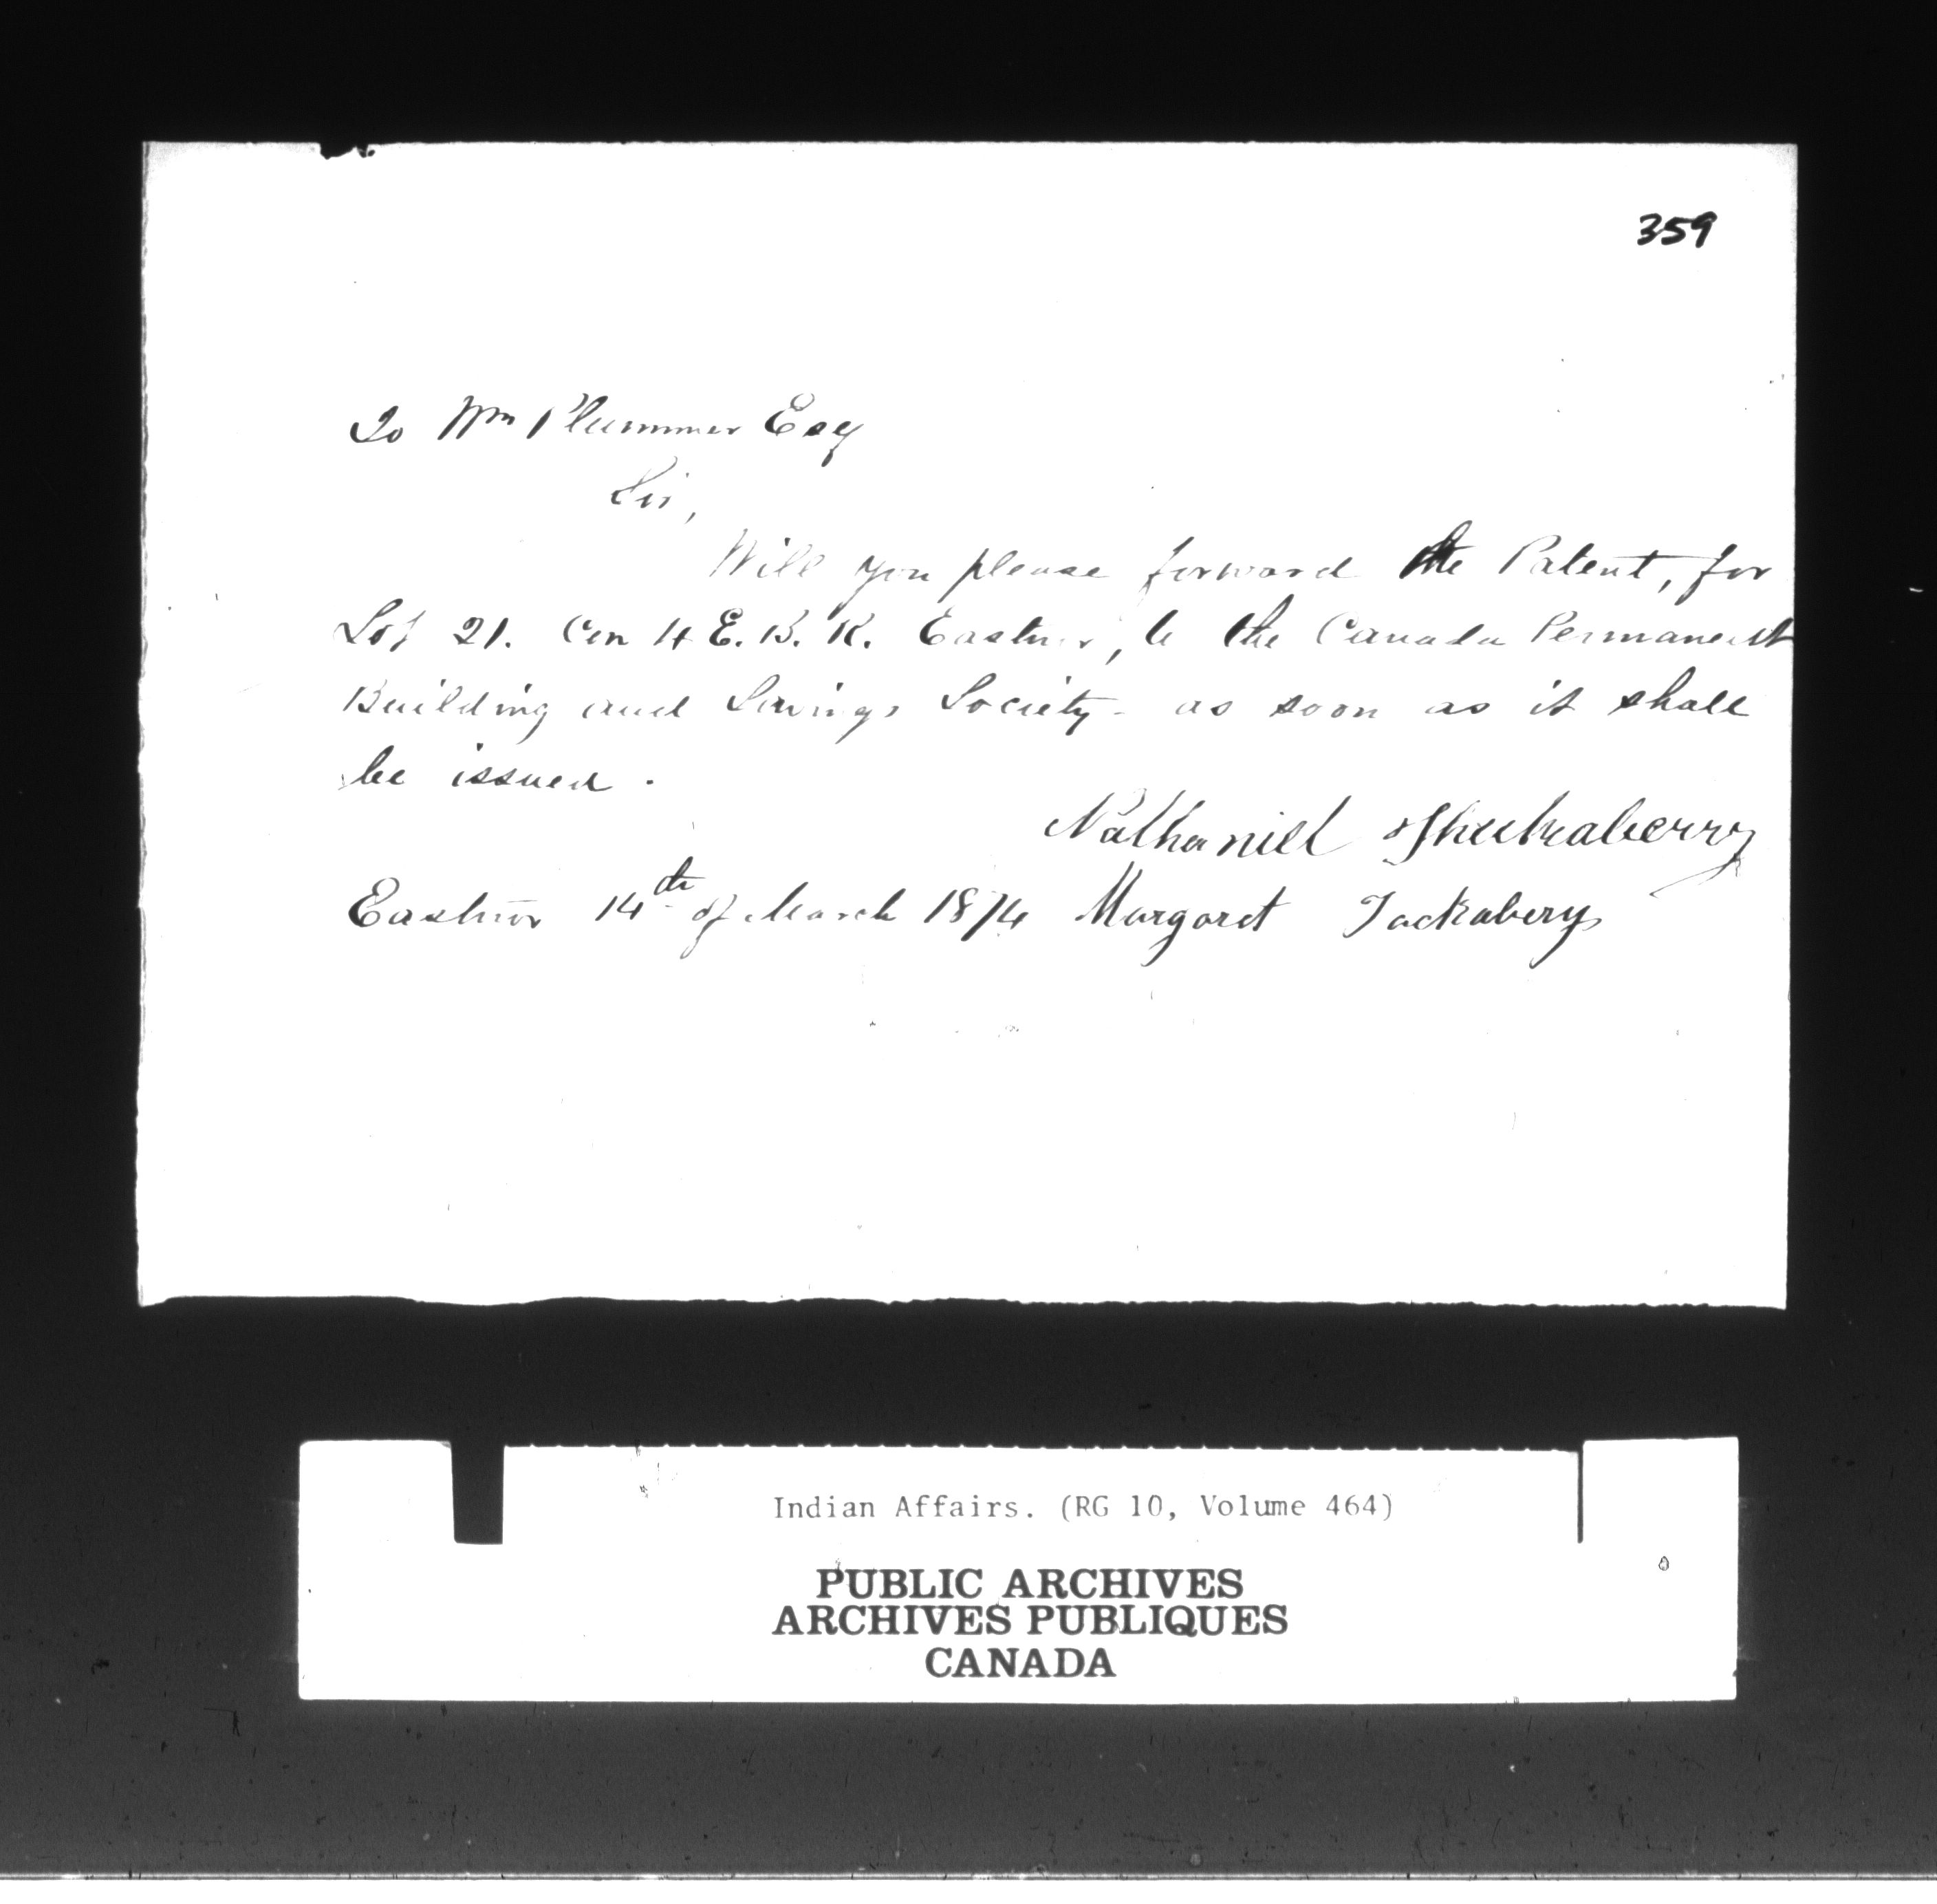 359
To Wm Plummer Esq
Sir,
Will you please forward the Patent, for
Lot 21. Con 4 E. B. R. Eastnor, to the Canada Permanent
Building and Savings Society - as soon as it shall
be issued.
Nathaniel
Eastnor 14th of March 1874 Margaret Tackabery
Indian Affairs. (RG 10, Volume 464)
PUBLIC ARCHIVES
ARCHIVES PUBLIQUES
CANADA